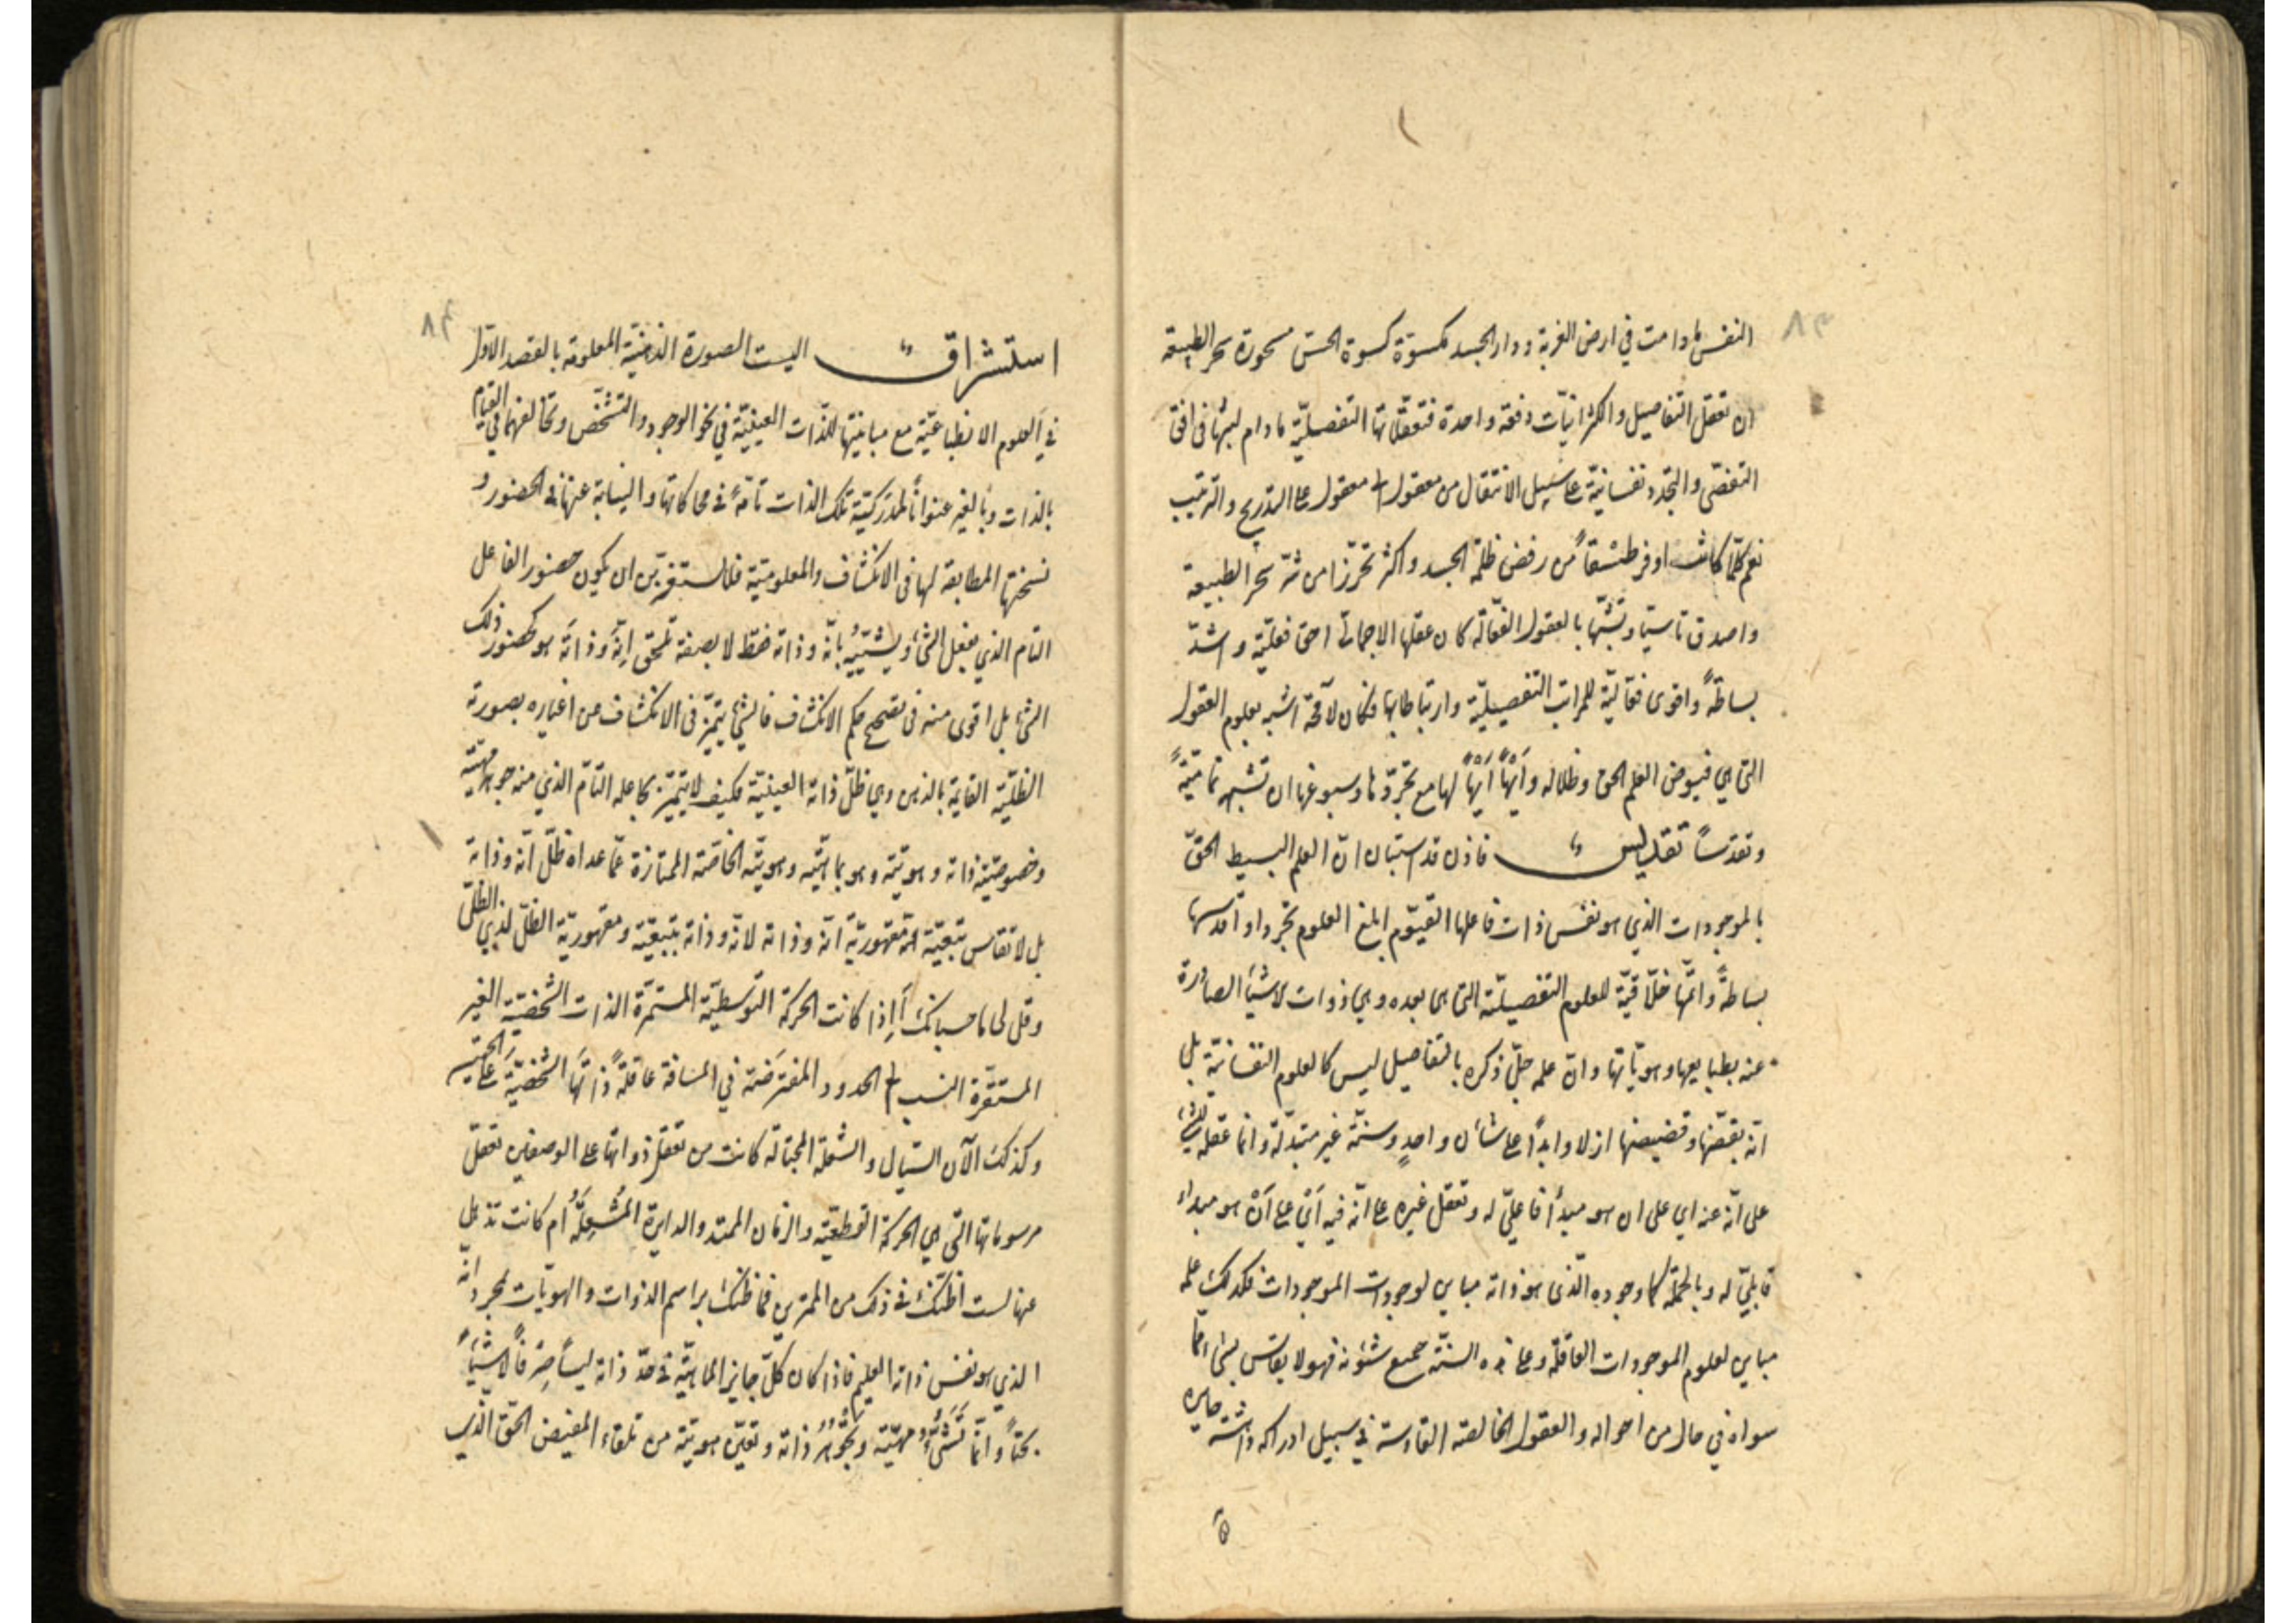 ٨٣
النفس ما دامت في ارض الغربة ودار الجسد مكسوّة كسوة الحسّ مسحورة بسحر الطبيعة
ان تعقل التفاصيل والكثرانيّات دفعة واحدة فتعقّلاتها التفصيليّة ما دام لبثها في افق
التقضّي والتجدّد نفسانيّة على سبيل الانتقال من معقول الى معقول على التدريج والترتيب
نعم كلّما كانت اوفر طسقاً من رفض ظلمة الجسد واكثر تحرّزا من شرّ سحر الطبيعة
واصدق تاسيّا وتشبّها بالعقول الفعّالة كان عقلها الاجمالي احقّ فعليّة واشدّ
بساطةً واقوى فعّاليّة للمراتب التفصيليّة وارتباطا بها فكان لا محة اشبه بعلوم العقول
التي هي فيوض العلم الحق وظلاله وأيهاً أيهاً لها مع تجرّدها وسبوغها ان تشبهه تماميّةً
وتقدّساً تقديس فاذن قد استبان انّ العلم البسيط الحقّ
بالموجودات الذي هو نفس ذات فاعلها القيّوم ابلغ العلوم تجردا واقدسها
بساطةً واتمّها خلّاقيّة للعلوم التفصيليّة التي هي بعده وهي ذوات الاشيآء الصادرة
عنه بطبايعها وهويّاتها وانّ علمه جلّ ذكره بالتفاصيل ليس كالعلوم النفسانيّة بل
انّه بقضّها وقضيضها ازلا وابداً على شان واحدٍ وسنّة غير متبدّلة وانما عقله للشئ
على انّه عنه اي على ان هو مبدأ فاعليّ له وتعقل غيره على انّه فيه أيْ على أنْ هو مبداء
قابليّ له وبالجملة كما وجوده الّذي هو ذاته مباين لوجودات الموجودات فكذلك علمه
مباين لعلوم الموجودات العاقلة وعلى هذه السنّة جميع شئونه فهو لا يقاس بشئ ممّا
سواه في حال من احواله والعقول الخالصة القادسة في سبيل ادراكه داهشة حايره
٨٤
استشراق اليست الصورة الذهنيّة المعلومة بالقصد الاوّل
في العلوم الانطباعيّة مع مباينتها للذّات العينيّة في نحو الوجود والتشخّص وتخالفهما في القيام
بالذات وبالغير عنواناً لمُدرَكيّة تلك الذات تامّةً في محاكاتها والنيابة عنها في الحضور و
نسختها المطابقة لها في الانكشاف والمعلوميّة فلا تستغربنّ ان يكون حضور الفاعل
التام الذي يفعل الشئ ويشيّئه بانّه وذاته فقط لا بصفة تلحق انّه وذاته هو كحضور ذلك
الشئ بل اقوى منه في تصحيح حكم الانكشاف فالشئ يتميّز في الانكشاف عن اغياره بصورته
الظلّيّة القايمة بالذهن وهي ظلّ ذاته العينيّة فكيف لا يتميّز بجاعله التامّ الذي منه جوهر مهيّته
وخصوصيّة ذاته وهويّته وهو بماهيّته وهويّته الخاصّة الممتازة عمّا عداه ظلّ انّه وذاته
بل لا تقاس تبعيّته لمقهوريّة انّه وذاته لانّه وذاته بتبعيّة ومقهوريّة الظلّ لذي الظلّ
وقل لي ما حسبانك أإذا كانت الحركة التوسطيّة المستمرّة الذات الشخصيّة الغير
المستقرّة النسب الى الحدود المفترضة في المسافة عاقلةً ذاتَها الشخصيّة على الحيثيتين
وكذلك الآن السّيال والشعلة الجوّالة كانت من تعقل ذواتها على الوصفين تعقل
مرسوماتها التي هي الحركة القطعيّة والزمان الممتد والدايرة المُشعلة أم كانت تذهل
عنها لست اظنّك في ذلك من الممترين فما ظنّك براسم الذوات والهويّات بمجرد انّه
الذي هو نفس ذاته العليم فاذا كان كلّ جايز الماهيّة في حدّ ذاته ليساً صِرفاً ولا شيئاً
بحتاً وانّما تَشيُّؤُ مهيّته وتجوهُرُ ذاته وتعيّن هويّته من تلقاء المفيض الحقّ الّذي